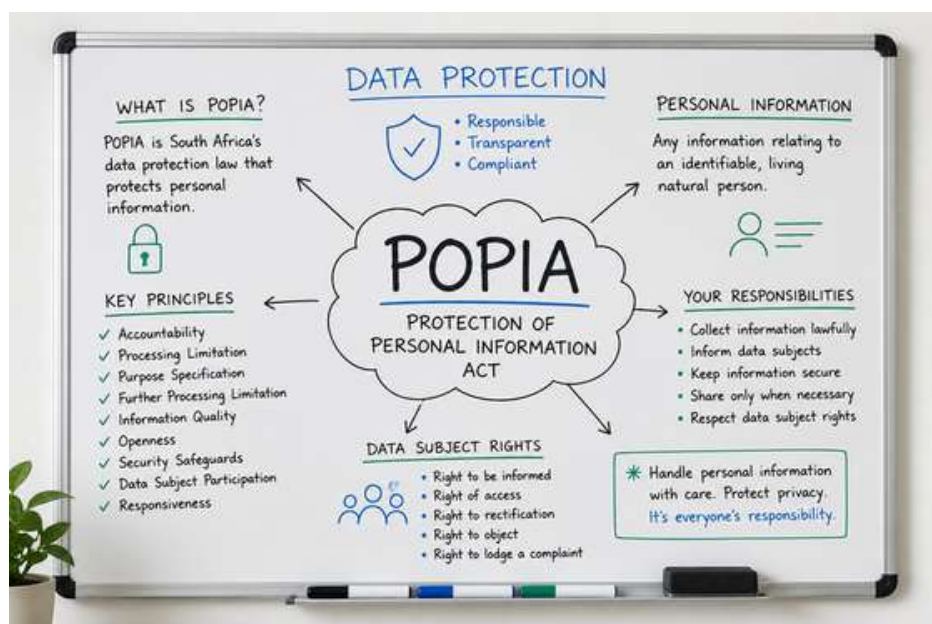 DATA PROTECTION
• Responsible
• Transparent
• Compliant
WHAT IS POPIA?
POPIA is South Africa's
data protection law that
protects personal
information.
PERSONAL INFORMATION
Any information relating to
an identifiable, living
natural person.
POPIA
PROTECTION OF
PERSONAL INFORMATION
ACT
KEY PRINCIPLES
✓ Accountability
✓ Processing Limitation
✓ Purpose Specification
✓ Further Processing Limitation
✓ Information Quality
✓ Openness
✓ Security Safeguards
✓ Data Subject Participation
✓ Responsiveness
YOUR RESPONSIBILITIES
• Collect information lawfully
• Inform data subjects
• Keep information secure
• Share only when necessary
• Respect data subject rights
DATA SUBJECT RIGHTS
• Right to be informed
• Right of access
• Right to rectification
• Right to object
• Right to lodge a complaint
* Handle personal information
with care. Protect privacy.
It's everyone's responsibility.